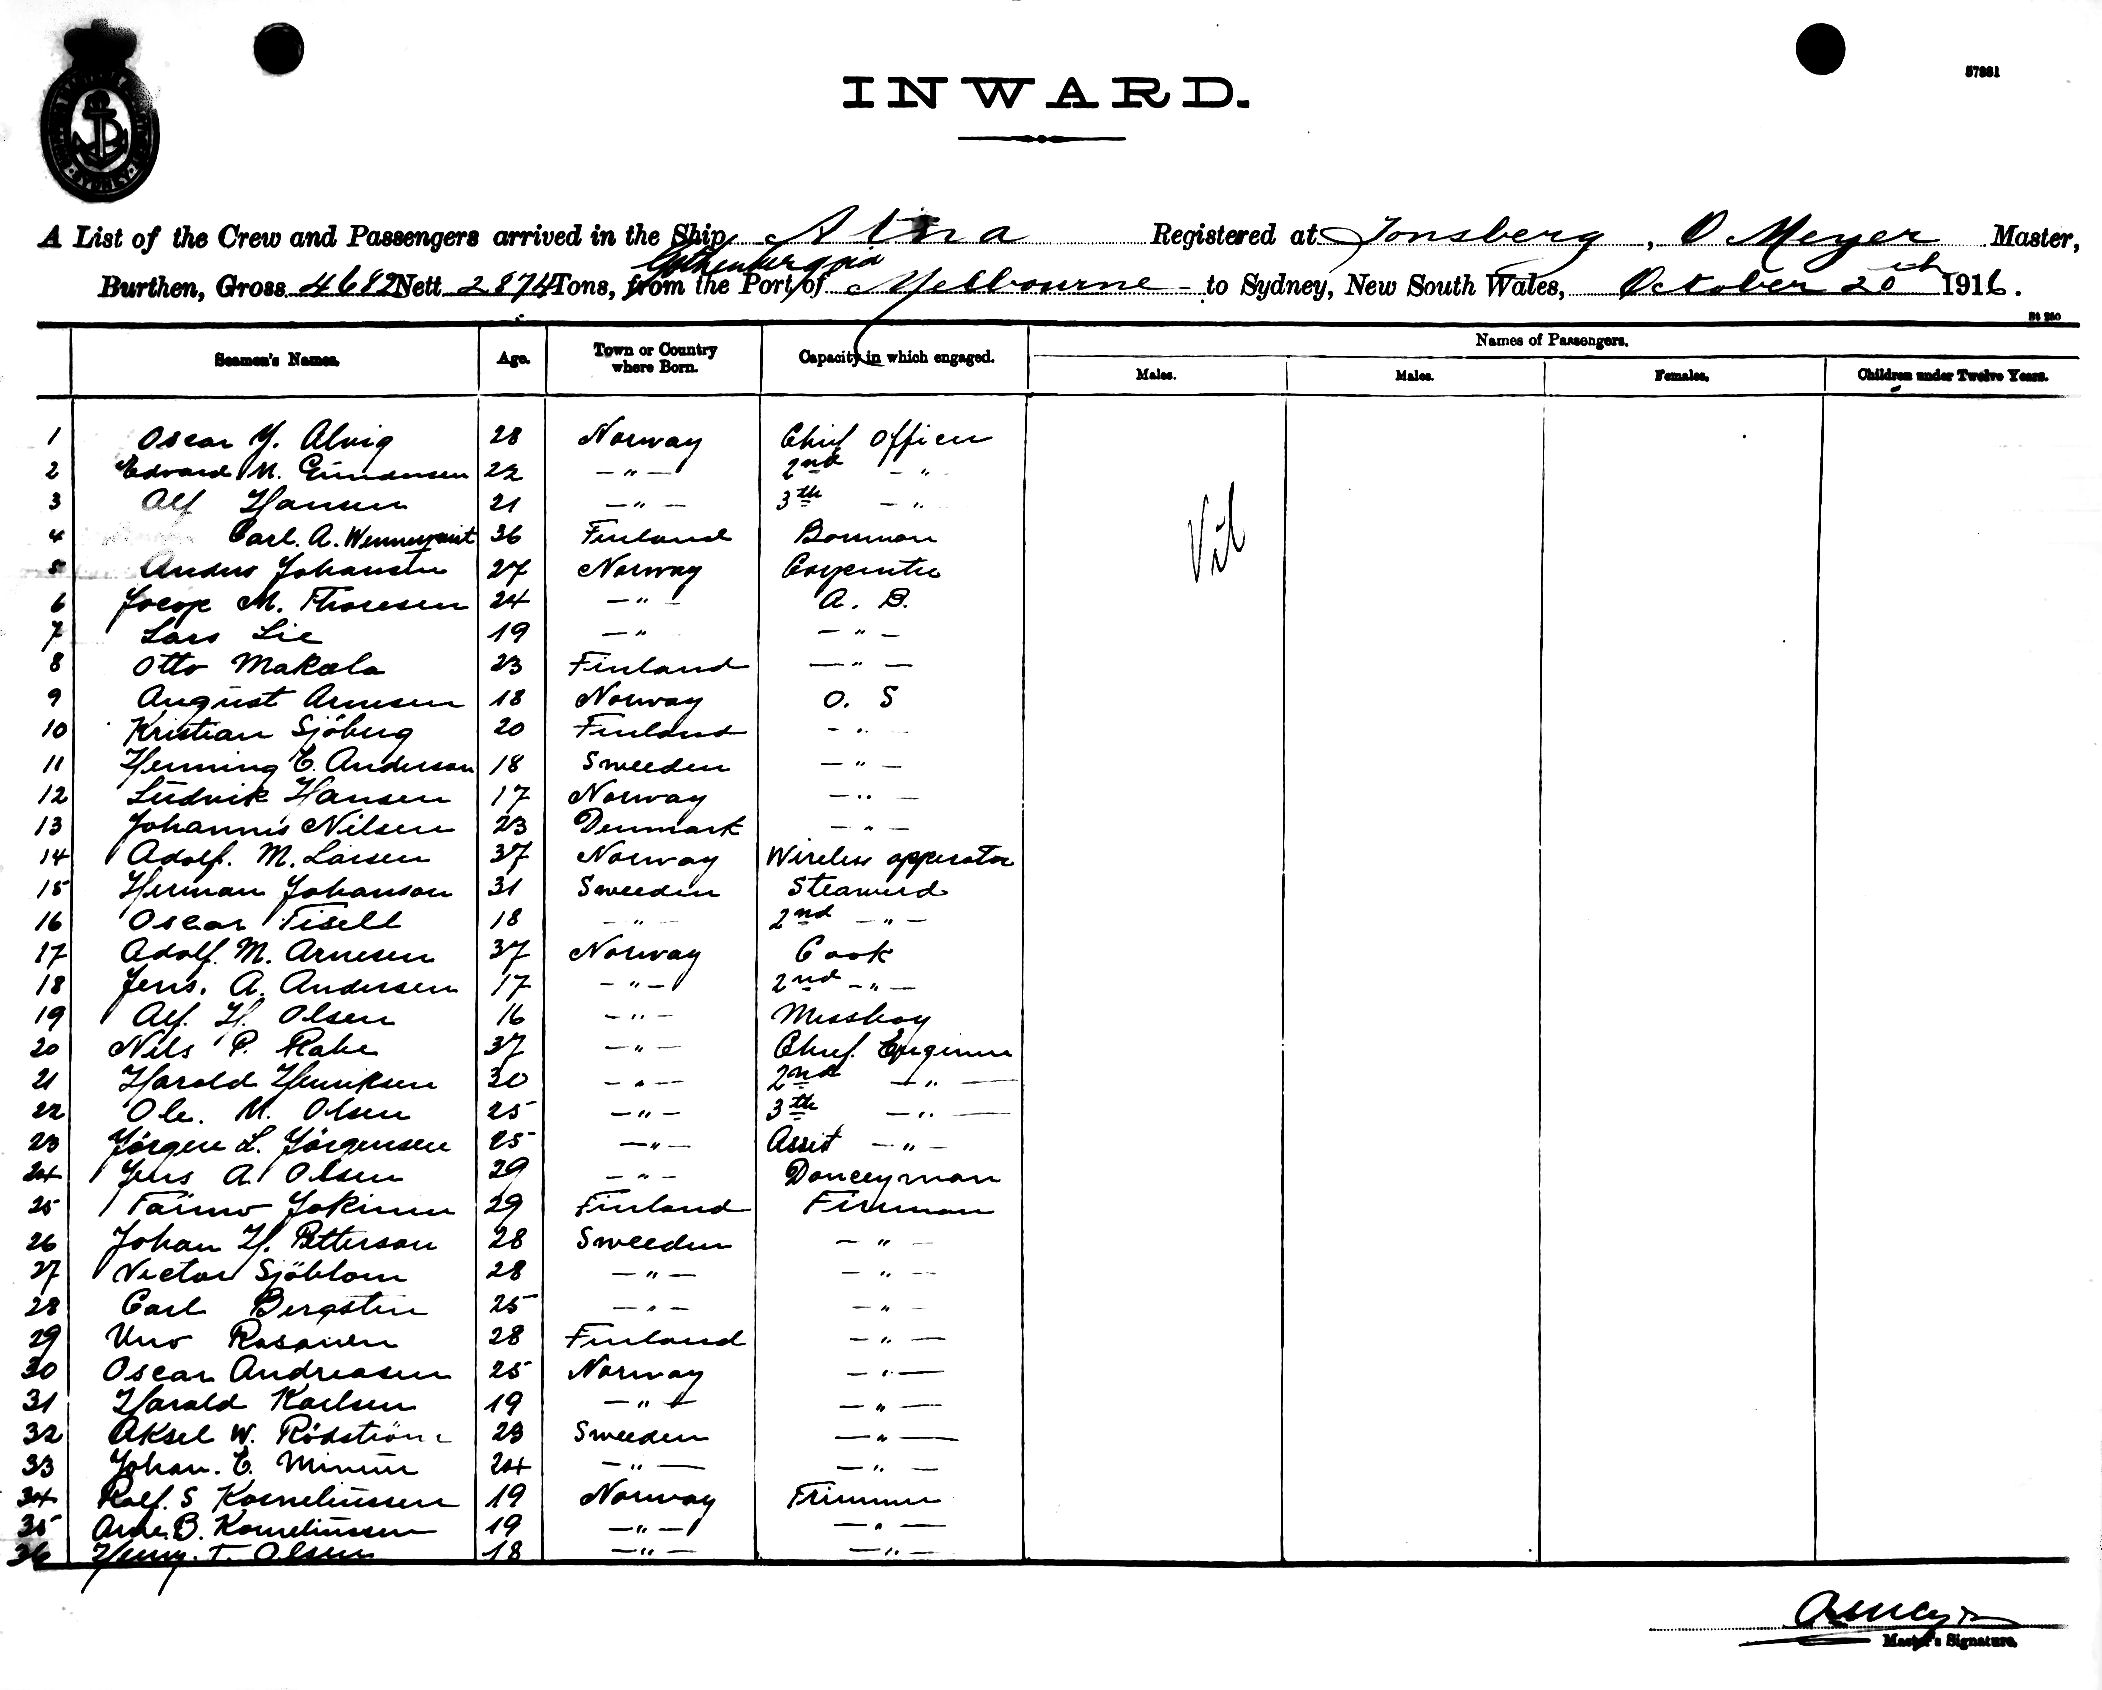 57881
INWARD.
A List of the Crew and Passengers arrived in the Ship Atna Registered at Tonsberg, O Meyer Master,
Gothenburg via
Burthen, Gross 4682 Nett 2874 Tons, from the Port of Melbourne - to Sydney, New South Wales, October 20th 1916.
Seamen's Names. Age. Town or Country where Born. Capacity in which engaged. Names of Passengers.
Males. Males. Females. Children under Twelve Years.
1 Oscar Y. Alvig 28 Norway Chief Officer
2 Edvard M. Gundersen 22 — " — 2nd — "
3 Alf Hansen 21 — " — 3th — "
4 Carl. A. 36 Finland Bosman
5 Anders Johansen 27 Norway Carpenter
6 Jocop M. Thoresen 24 — " — A. B.
7 Lars Lie 19 — " — " —
8 Otto Makala 23 Finland — " —
9 August Arnesen 18 Norway O. S
10 Kristian Sjöberg 20 Finland - " -
11 Henning E. Anderson 18 Sweeden — " —
12 Ludvik Hansen 17 Norway — " —
13 Johannes Nilsen 23 Denmark — " —
14 Adolf. M. Larsen 37 Norway Wireless opperator
15 Herman Johanson 31 Sweeden Steawerd
16 Oscar Tisell 18 - " - 2nd — " —
17 Adolf. M. Arnesen 37 Norway Cook
18 Jens. A. Andersen 17 - " - 2nd - " -
19 Alf. H. Olsen 16 - " - Messboy
20 Nils P. Rabe 37 - " - Chief. Engineer
21 Harald Henriksen 30 - " — 2nd — " —
22 Ole. M. Olsen 25 — " — 3th — " —
23 Jörgen L. Jörgensen 25 — " — Assist — " —
24 Jens A. Olsen 29 - " - Donceyman
25 Taimo Jokinen 29 Finland Firman
26 Johan H. Petterson 28 Sweeden — " —
27 Victor Sjöblom 28 — " — — " —
28 Carl Bergsten 25 — " — — " —
29 Uno Rosanen 28 Finland — " —
30 Oscar Andreasen 25 Norway — " —
31 Harald Karlsen 19 — " — — " —
32 Aksel W. Rödström 23 Sweeden — " —
33 Johan. E. 24 — " — — " —
34 Rolf. S Korneliussen 19 Norway Trimmer
35 Arne. B. Korneliussen 19 — " — — " —
36 Henry. T. Olsen 18 — " — — " —
Master's Signature.